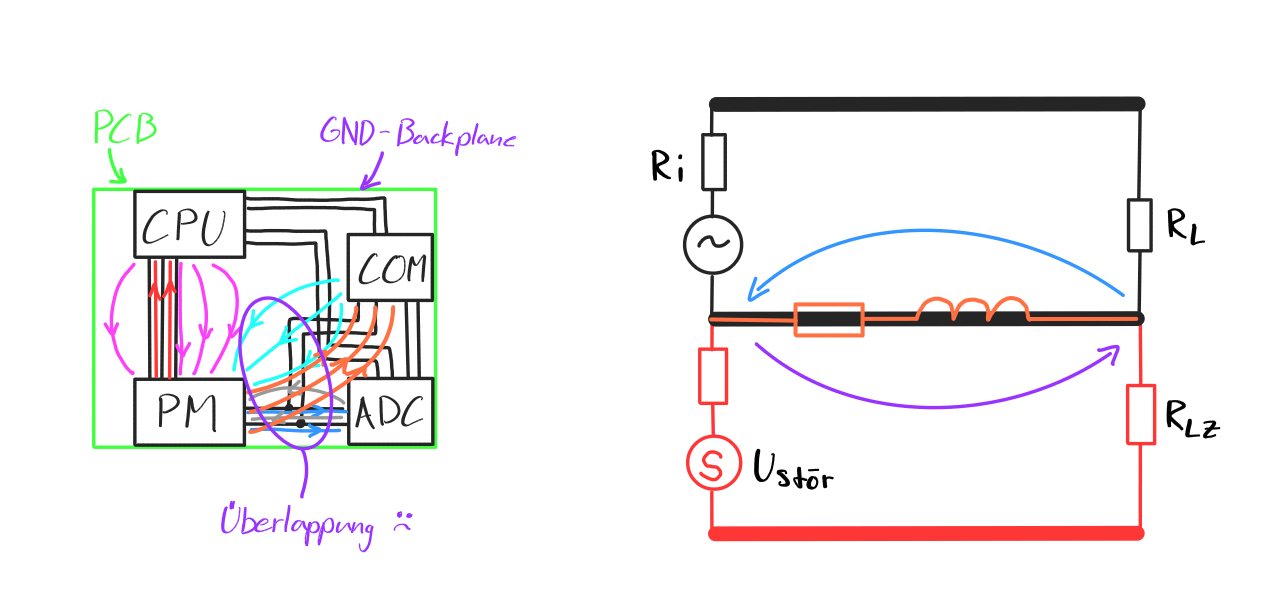 PCB
GND-Backplane
CPU
COM
PM
ADC
Überlappung :(
Ri
~
RL
S
Ustör
RLZ